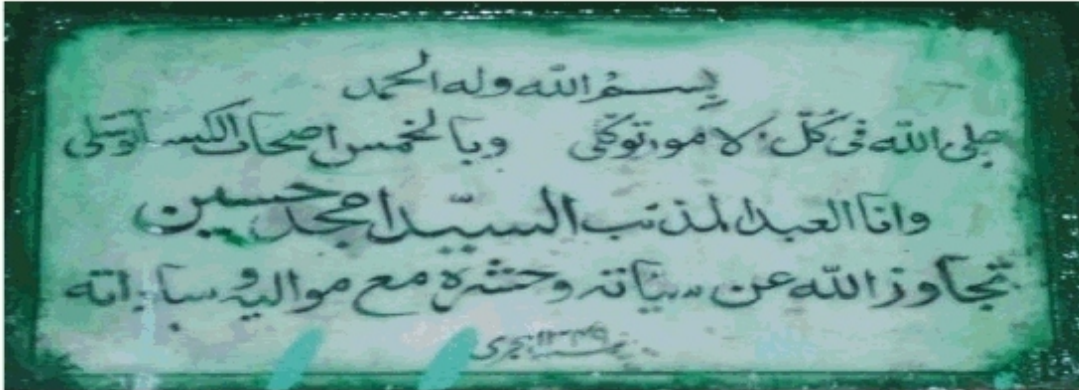 بسم الله وله الحمد
على الله في كل الامور توكلي وبالخمس اصحاب الكساء توسلي
وانا العبد المذنب السيد امجد حسين
تجاوز الله عن سيئاته وحشره مع مواليه وساداته
١٣٤٩ هجرى